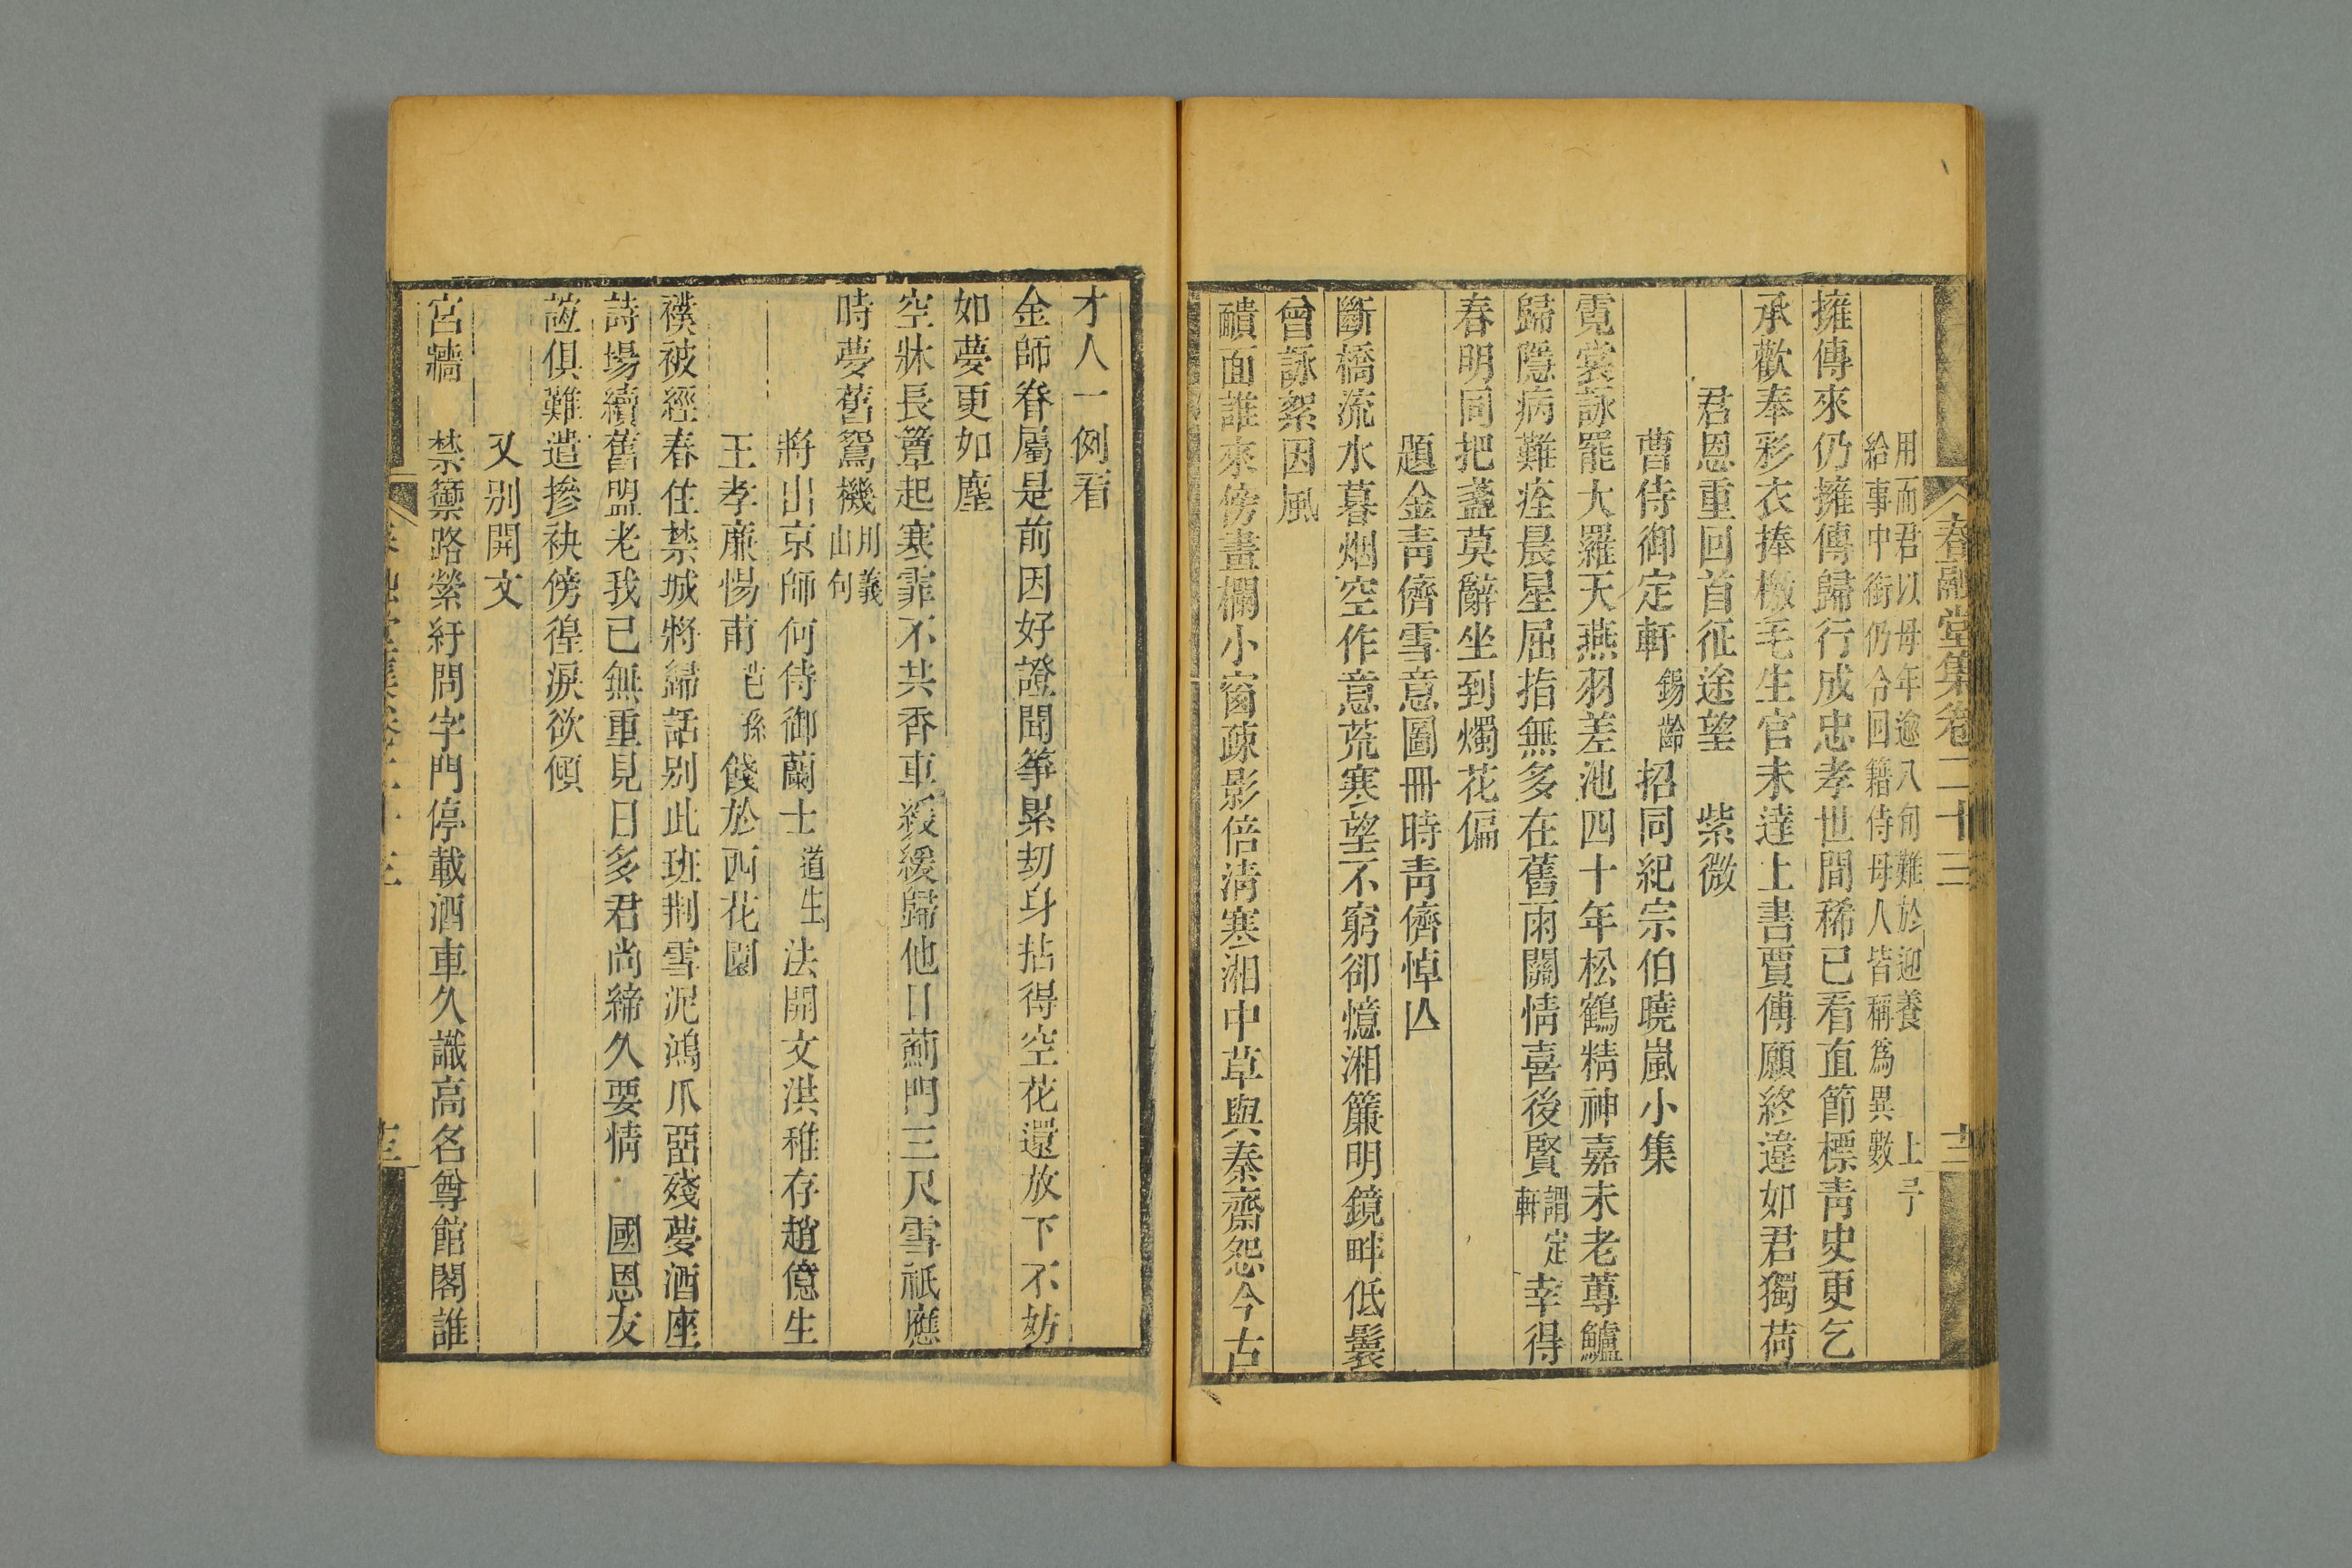 春融堂集卷二十三
十二
用而君以母年逾八旬難於迎養 上予
給事中銜仍令回籍侍母人皆稱爲異數
擁傳來仍擁傳歸行成忠孝世間稀已看直節標青史更乞
承歡奉彩衣捧檄毛生官未達上書賈傅願終違如君獨荷
君恩重回首征途望 紫微
曹侍御定軒錫齡招同紀宗伯曉嵐小集
霓裳詠罷大羅天燕羽差池四十年松鶴精神嘉未老蓴鱸
歸隱病難痊晨星屈指無多在舊雨關情喜後賢謂定軒幸得
春明同把盞莫辭坐到燭花偏
題金青儕雪意圖冊時青儕悼亾
斷橋流水暮烟空作意荒寒望不窮卻憶湘簾明鏡畔低鬟
曾詠絮因風
靧面誰來傍畫欄小窗疎影倍淸寒湘中草與秦齋怨今古
才人一例看
金師眷屬是前因好證聞箏累刧身拈得空花還放下不妨
如夢更如塵
空牀長簟起寒霏不共香車緩緩歸他日薊門三尺雪祇應
時夢舊鴛機用義山句
將出京師何侍御蘭士道生法開文洪稚存趙億生
王孝廉惕甫芑孫餞於西花園
襆被經春住禁城將歸話别此班荆雪泥鴻爪留殘夢酒座
詩場續舊盟老我已無重見日多君尚締久要情 國恩友
誼俱難遣摻袂傍徨淚欲傾
又别開文
宮牆 禁籞路縈紆問字門停載酒車久識高名尊館閣誰
十三